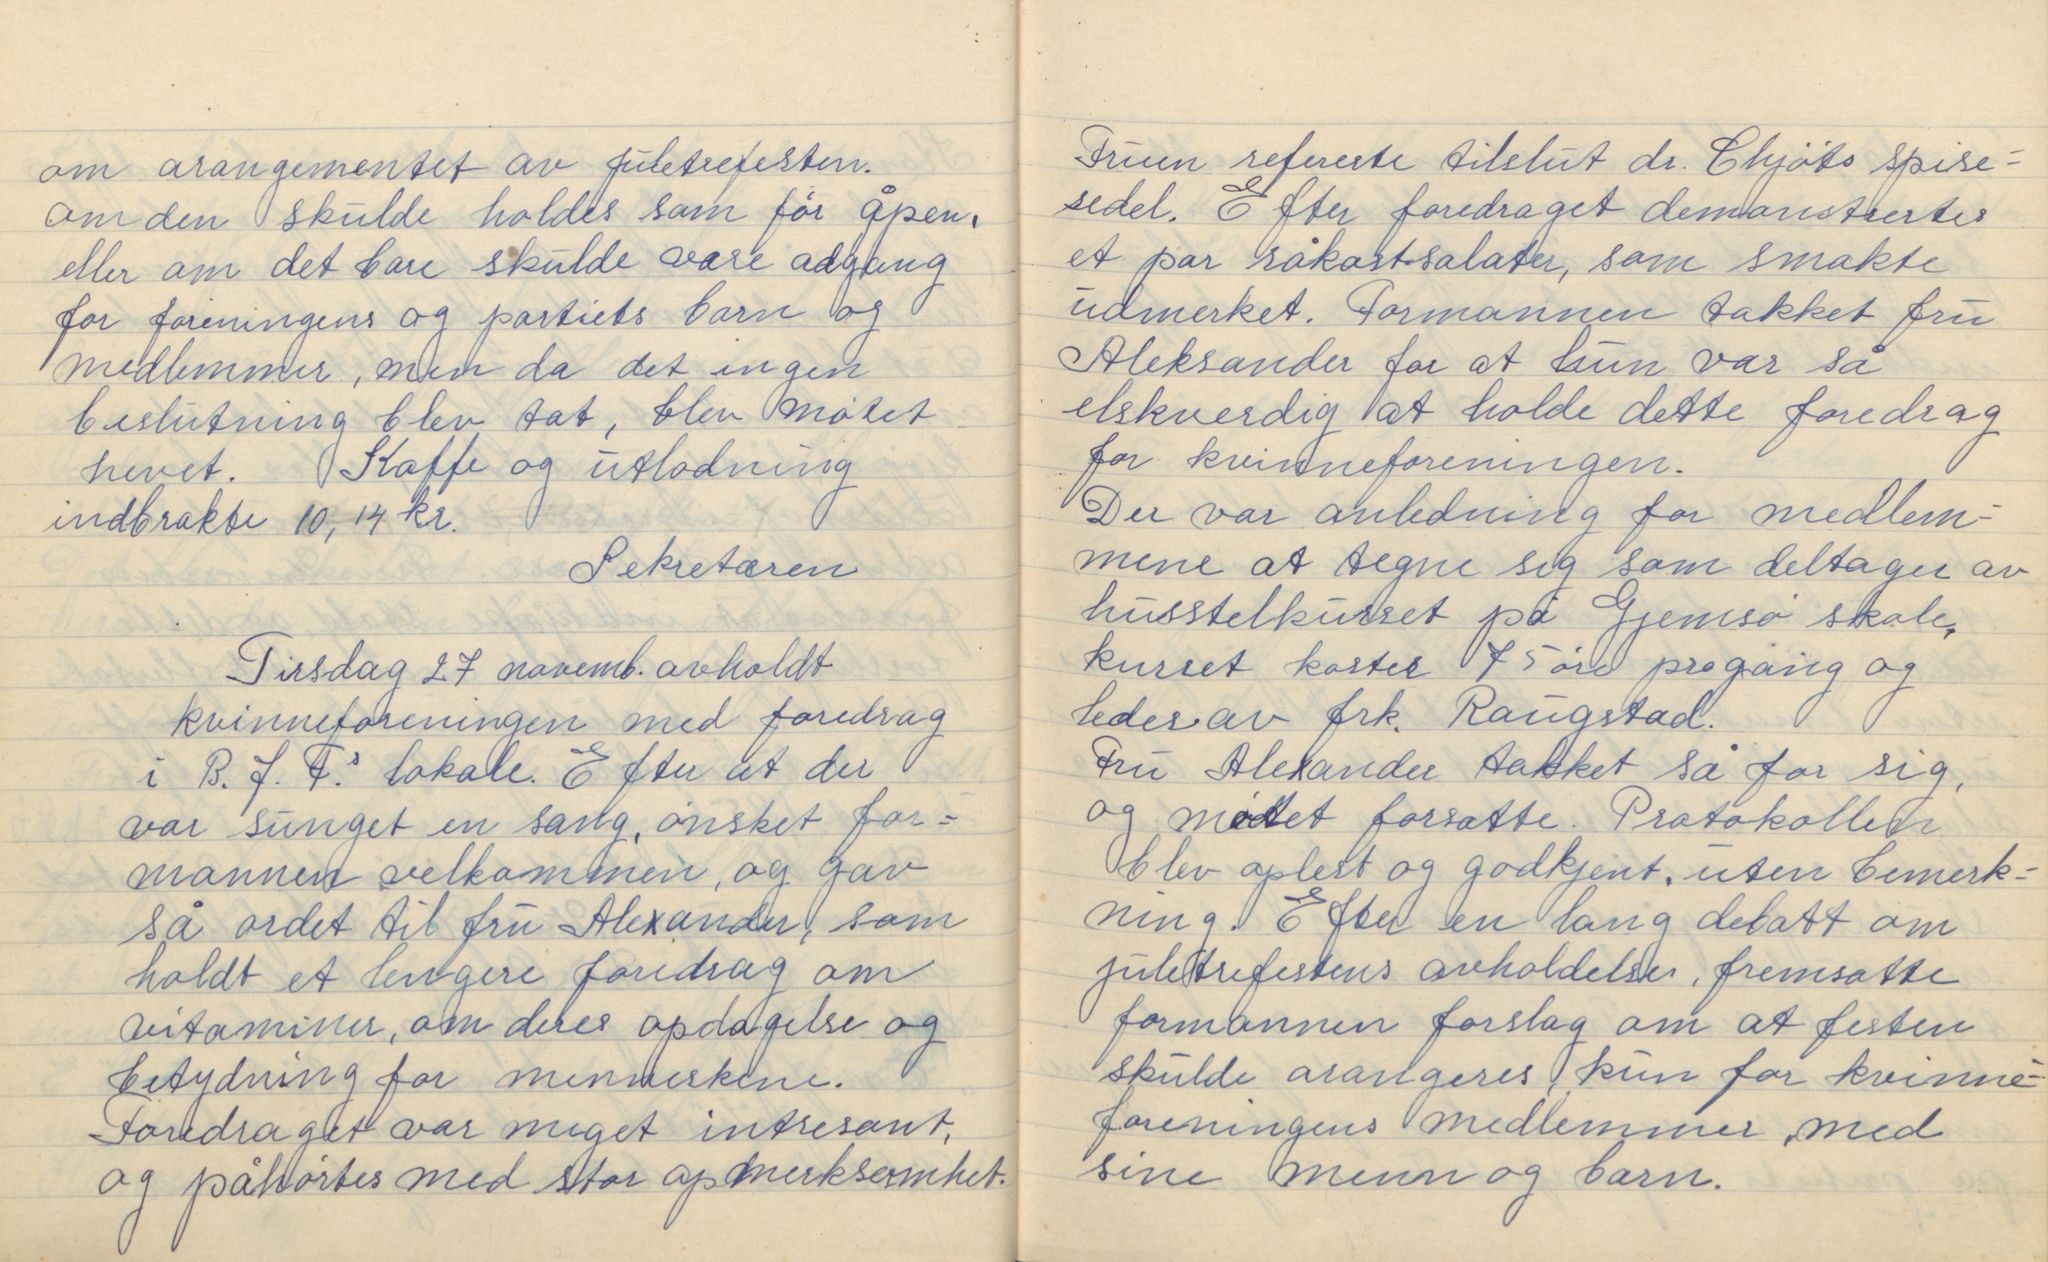 om arangementet av juletrefesten.
om den skulde holdes som før åpen,
eller om det bare skulde være adgang
for foreningens og partiets barn og
medlemmer, men da det ingen
beslutning blev tat, blev møtet
hevet. Kaffe og utlodning
indbrakte 10,14 kr.
Sekretæren
Tirsdag 27 novemb. avholdt
kvinneforeningen med foredrag
i B. J. F.s lokale. Efter at der
var sunget en sang, ønsket for-
mannen velkommen, og gav
så ordet til fru Alexander, som
holdt et lengere foredrag om
vitaminer, om deres opdagelse og
betydning for menneskene.
Foredraget var meget intresant,
og påhørtes med stor opmerksomhet.
Fruen refererte tilslut dr. spise-
sedel. Efter foredraget demonstrertes
et par råkostsalater, som smakte
udmerket. Formannen takket fru
Aleksander for at hun var så
elskverdig at holde dette foredrag
for kvinneforeningen.
Der var anledning for medlem-
mene at tegne sig som deltager av
husstelkurset på Gjemsø skole,
kurset koster 75 øre pro gang og
ledes av frk. Raugstad.
Fru Alexander takket så for sig,
og møtet forsatte. Protokollen
blev oplest og godkjent, uten bemerk-
ning. Efter en lang debatt om
juletrefestens avholdelse, fremsatte
formannen forslag om at festen
skulde arangeres, kun for kvinne-
foreningens medlemmer, med
sine menn og barn.